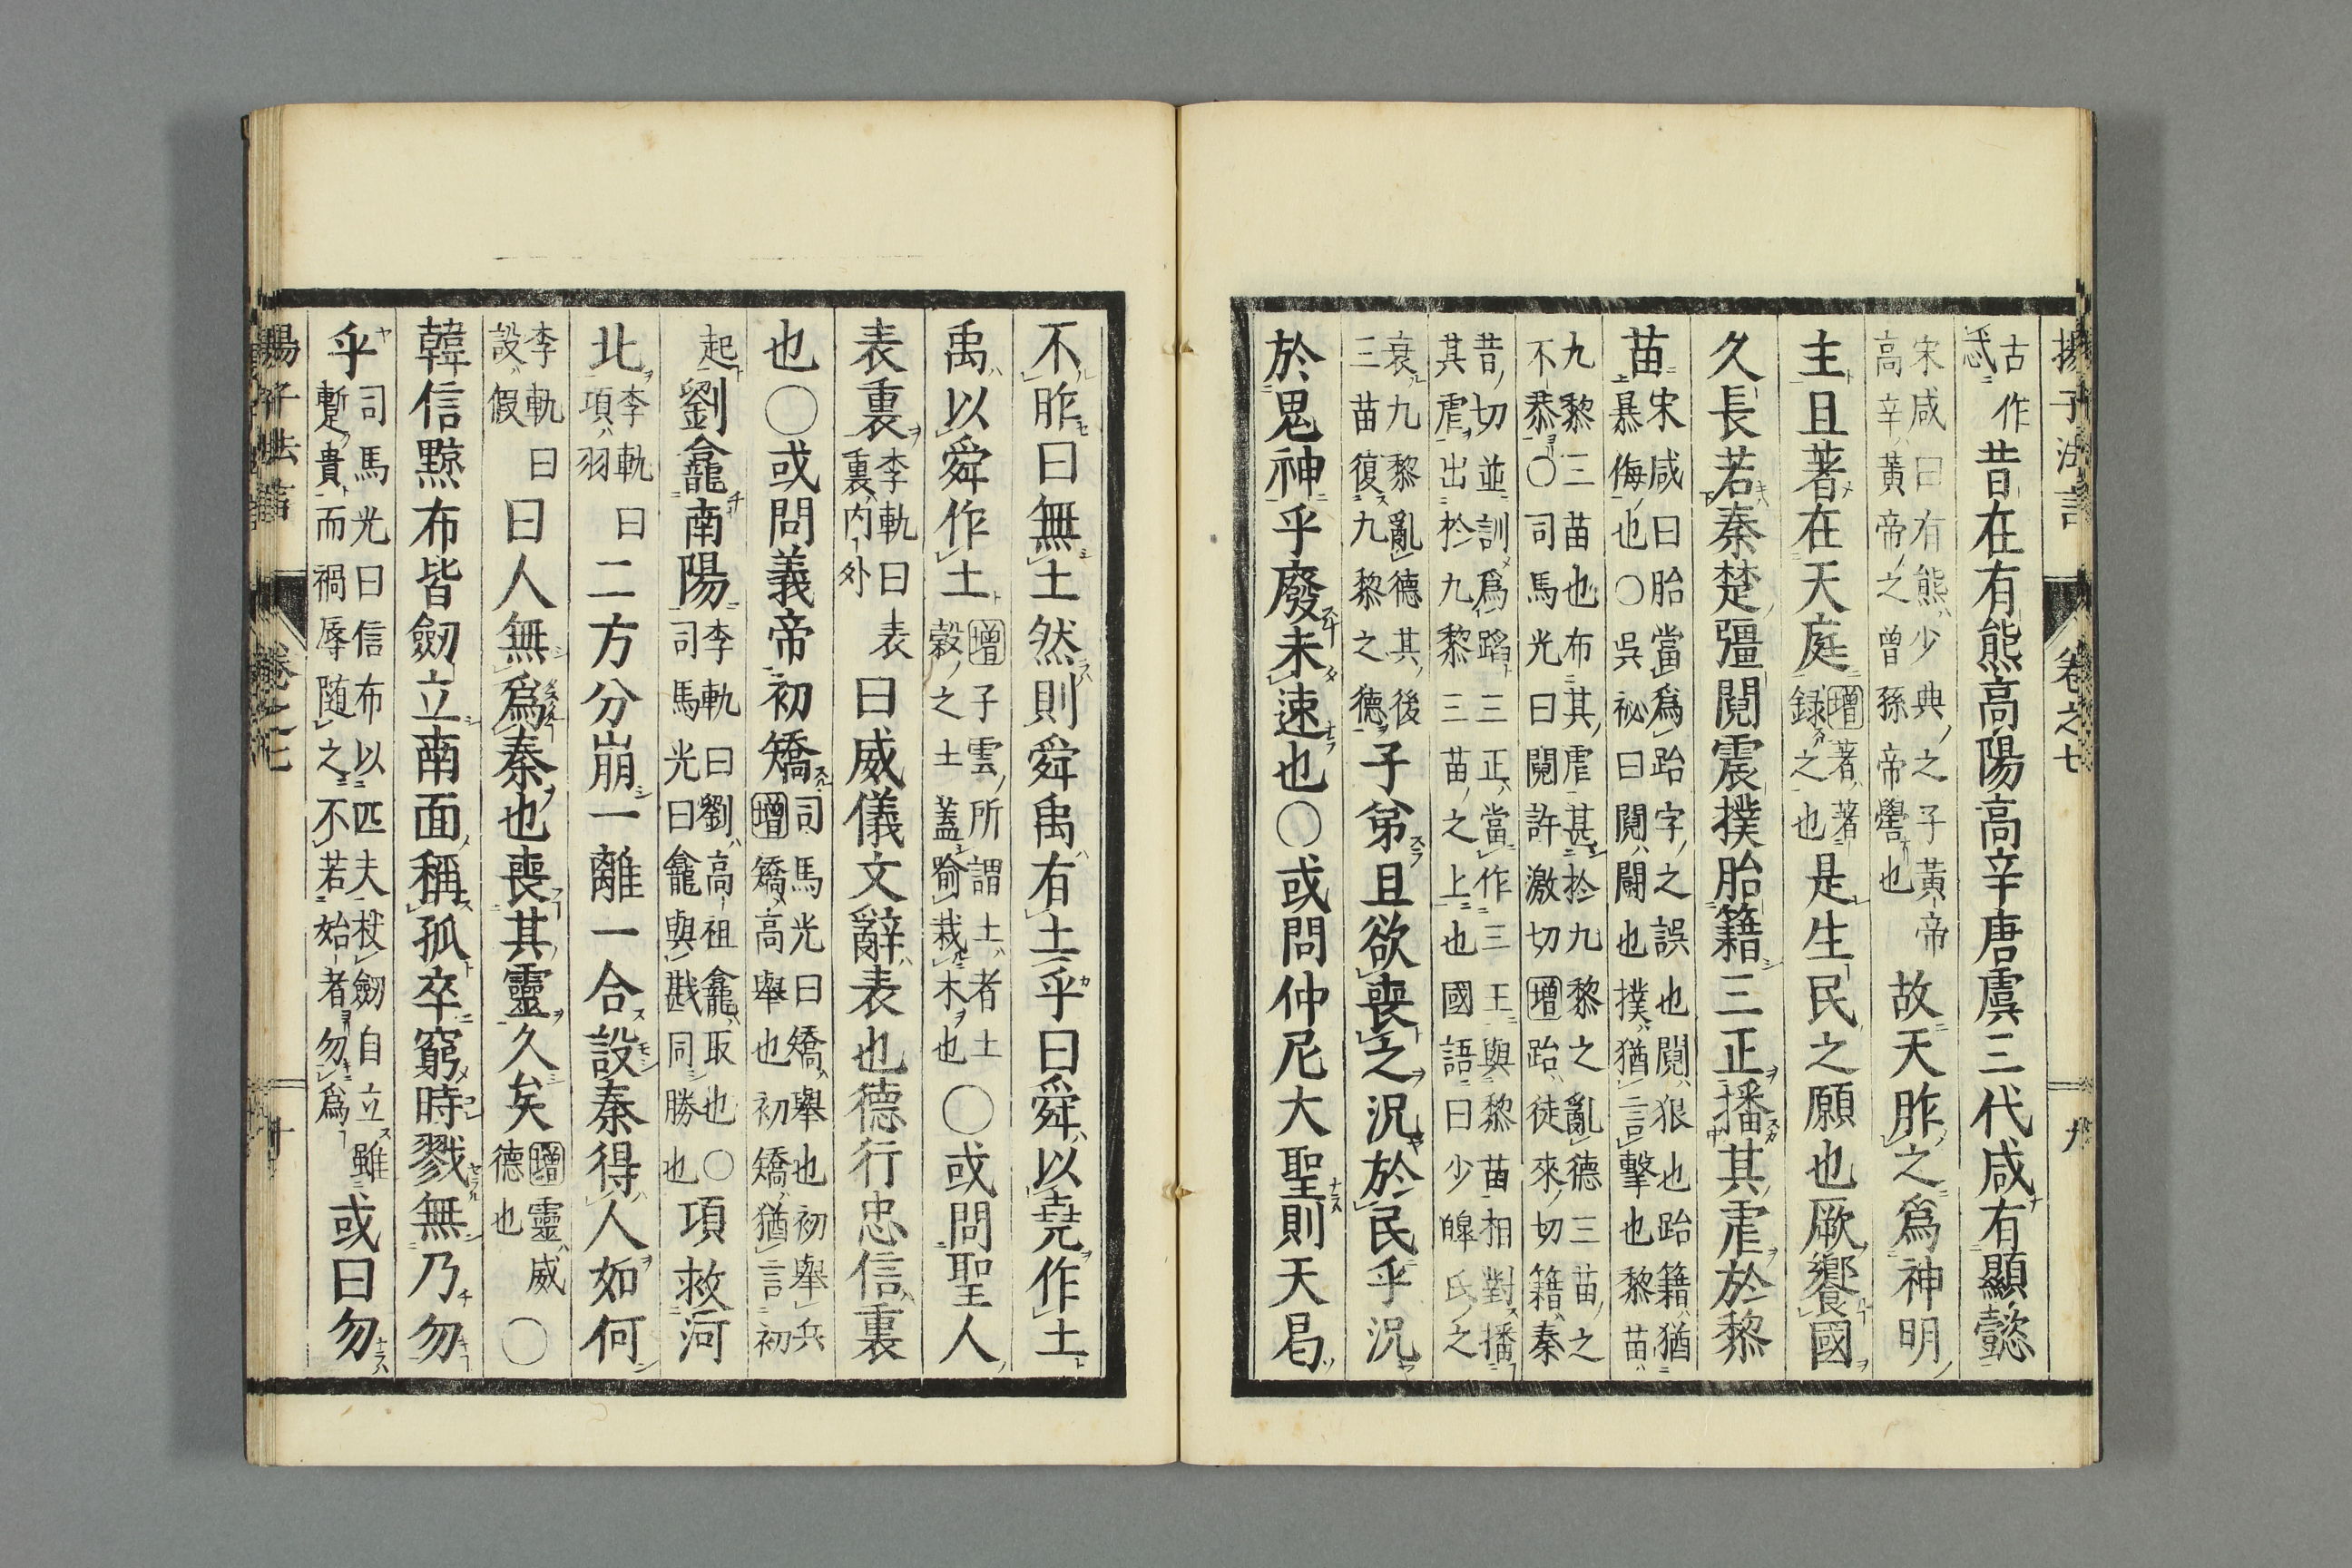 揚子法言 卷之七 九
忒古作昔在有熊高陽高辛唐虞三代咸有顯懿
宋咸曰有熊少典之子黃帝高辛黃帝之曾孫帝嚳也故天胙之爲神明
主且著在天庭增著著錄之也是生民之願也厥饗國
久長若秦楚彊鬩震撲胎籍三正播其虐於黎
苗宋咸曰胎當爲跆字之誤也鬩狠也跆籍猶暴侮也○吳祕曰鬩鬪也撲猶言擊也黎苗
九黎三苗也布其虐甚於九黎之亂德三苗之不恭○司馬光曰鬩許激切增跆徒來切籍秦
昔切並訓爲蹈三正當作三王與黎苗相對播其虐出於九黎三苗之上也國語曰少皞氏之
衰九黎亂德其後三苗復九黎之德子弟且欲喪之況於民乎況
於鬼神乎廢未速也○或問仲尼大聖則天曷
不胙曰無土然則舜禹有土乎曰舜以堯作土
禹以舜作土增子雲所謂土者土穀之土蓋喻栽木也○或問聖人
表裏李軌曰表裏內外曰威儀文辭表也德行忠信裏
也○或問義帝初矯司馬光曰矯舉也初舉兵增矯高舉也初矯猶言初
起劉龕南陽李軌曰劉高祖龕取也○司馬光曰龕與戡同勝也項救河
北李軌曰項羽二方分崩一離一合設秦得人如何
李軌曰設假曰人無爲秦也喪其靈久矣增靈威德也○
韓信黥布皆劒立南面稱孤卒窮時戮無乃勿
乎司馬光曰信布以匹夫杖劒自立雖蹔貴而禍辱隨之不若始者勿爲或曰勿